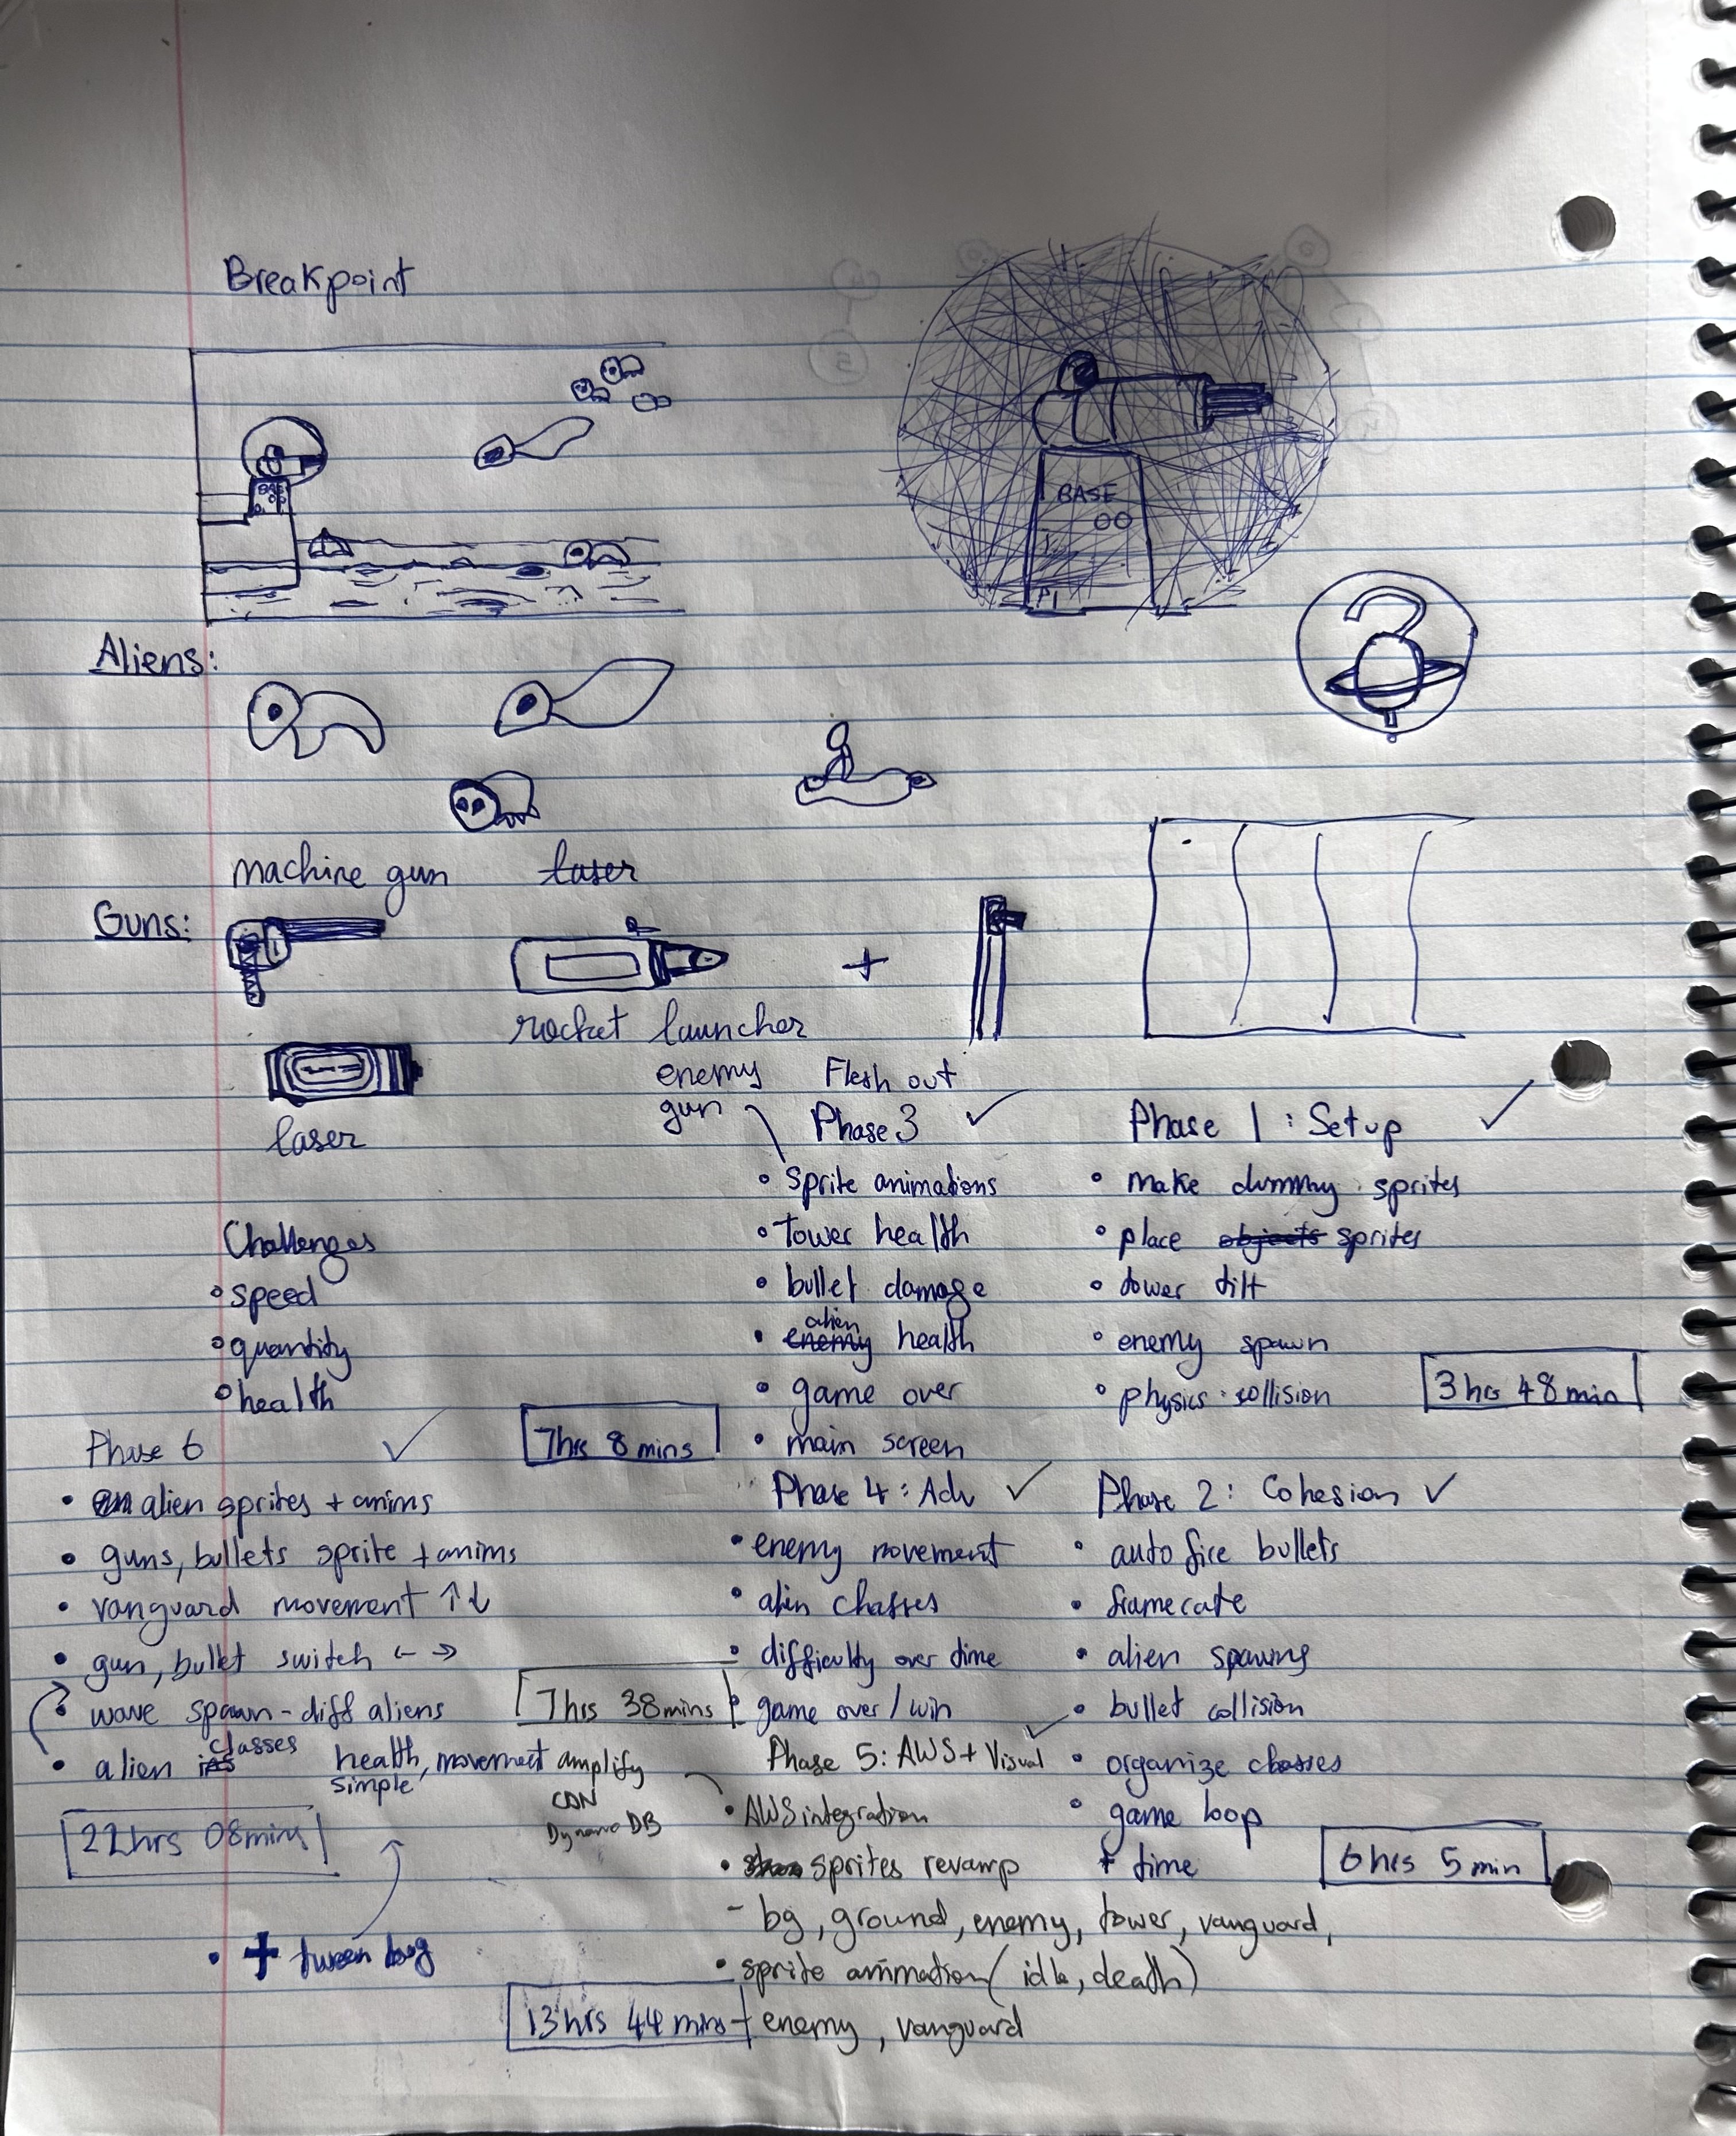 Breakpoint
BASE
OO
P1
Aliens:
machine gun
laser
Guns:
rocket launcher
laser
enemy
gun
Flesh out
Phase 3 ✓
• sprite animations
• tower health
• bullet damage
• enemy alien health
• game over
• main screen
7hrs 8 mins
Phase 1 : Setup ✓
• make dummy sprites
• place objects sprites
• tower tilt
• enemy spawn
• physics collision
3 hrs 48 min
Challenges
• speed
• quantity
• health
Phase 4 : Adv ✓
• enemy movement
• alien classes
• difficulty over time
• game over / win
7hrs 38mins
Phase 2 : Cohesion ✓
• auto fire bullets
• framerate
• alien spawns
• bullet collision
• organize classes
• game loop
+ time
6 hrs 5 min
Phase 6 ✓
• alien sprites + anims
• guns, bullets sprite + anims
• vanguard movement ↑↓
• gun, bullet switch ← →
• wave spawn - diff aliens
• alien classes health, movement
simple
22hrs 08mins
• + tween bug
Phase 5: AWS + Visual ✓
amplify
CDN
Dynamo DB
• AWS integration
• sprites revamp
- bg, ground, enemy, tower, vanguard,
• sprite animation (idle, death)
- enemy, vanguard
13 hrs 44 mins